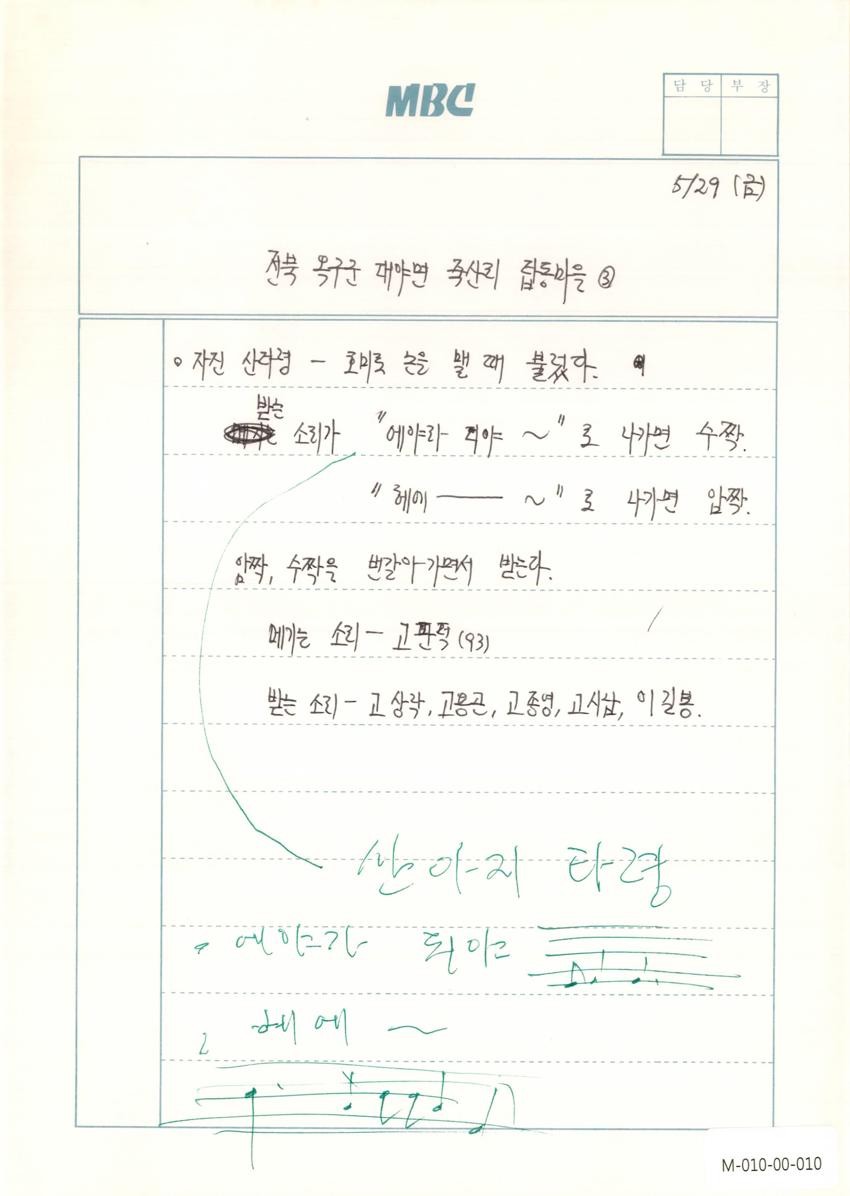 MBC
담당 부장
5/29 (금)
전북 옥구군 대야면 죽산리 탑동마을 ③
○ 자진 산타령 - 호미로 논을 맬 때 불렀다.
받는
소리가 "에야라 디야 ~"로 나가면 수짝.
"헤에 —— ~"로 나가면 암짝.
암짝, 수짝을 번갈아가면서 받는다.
메기는 소리 - 고판덕(93)
받는 소리 - 고상락, 고용곤, 고종영, 고시삼, 이길봉.
산아지 타령
헤에 ~
M-010-00-010